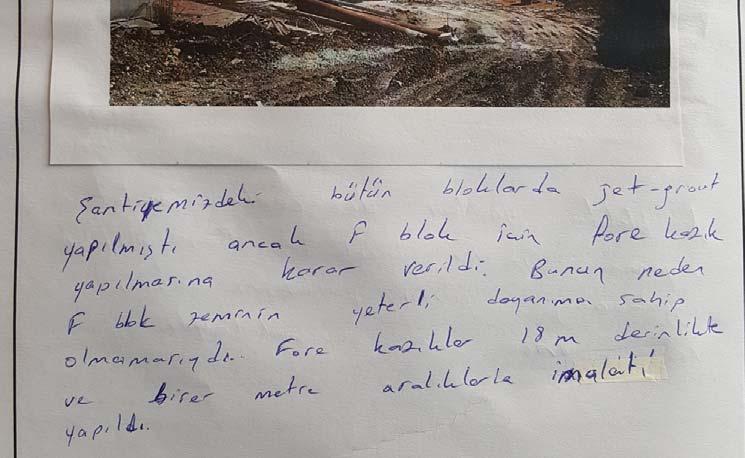 Şantiyemizdeki bütün bloklarda jet-grout
yapılmıştı ancak F blok için Fore kazık
yapılmasına karar verildi. Bunun neden
F blok zeminin yeterli dayanıma sahip
olmamasıydı. Fore kazıklar 18 m derinlikte
ve birer metre aralıklarla imalatı
yapıldı.